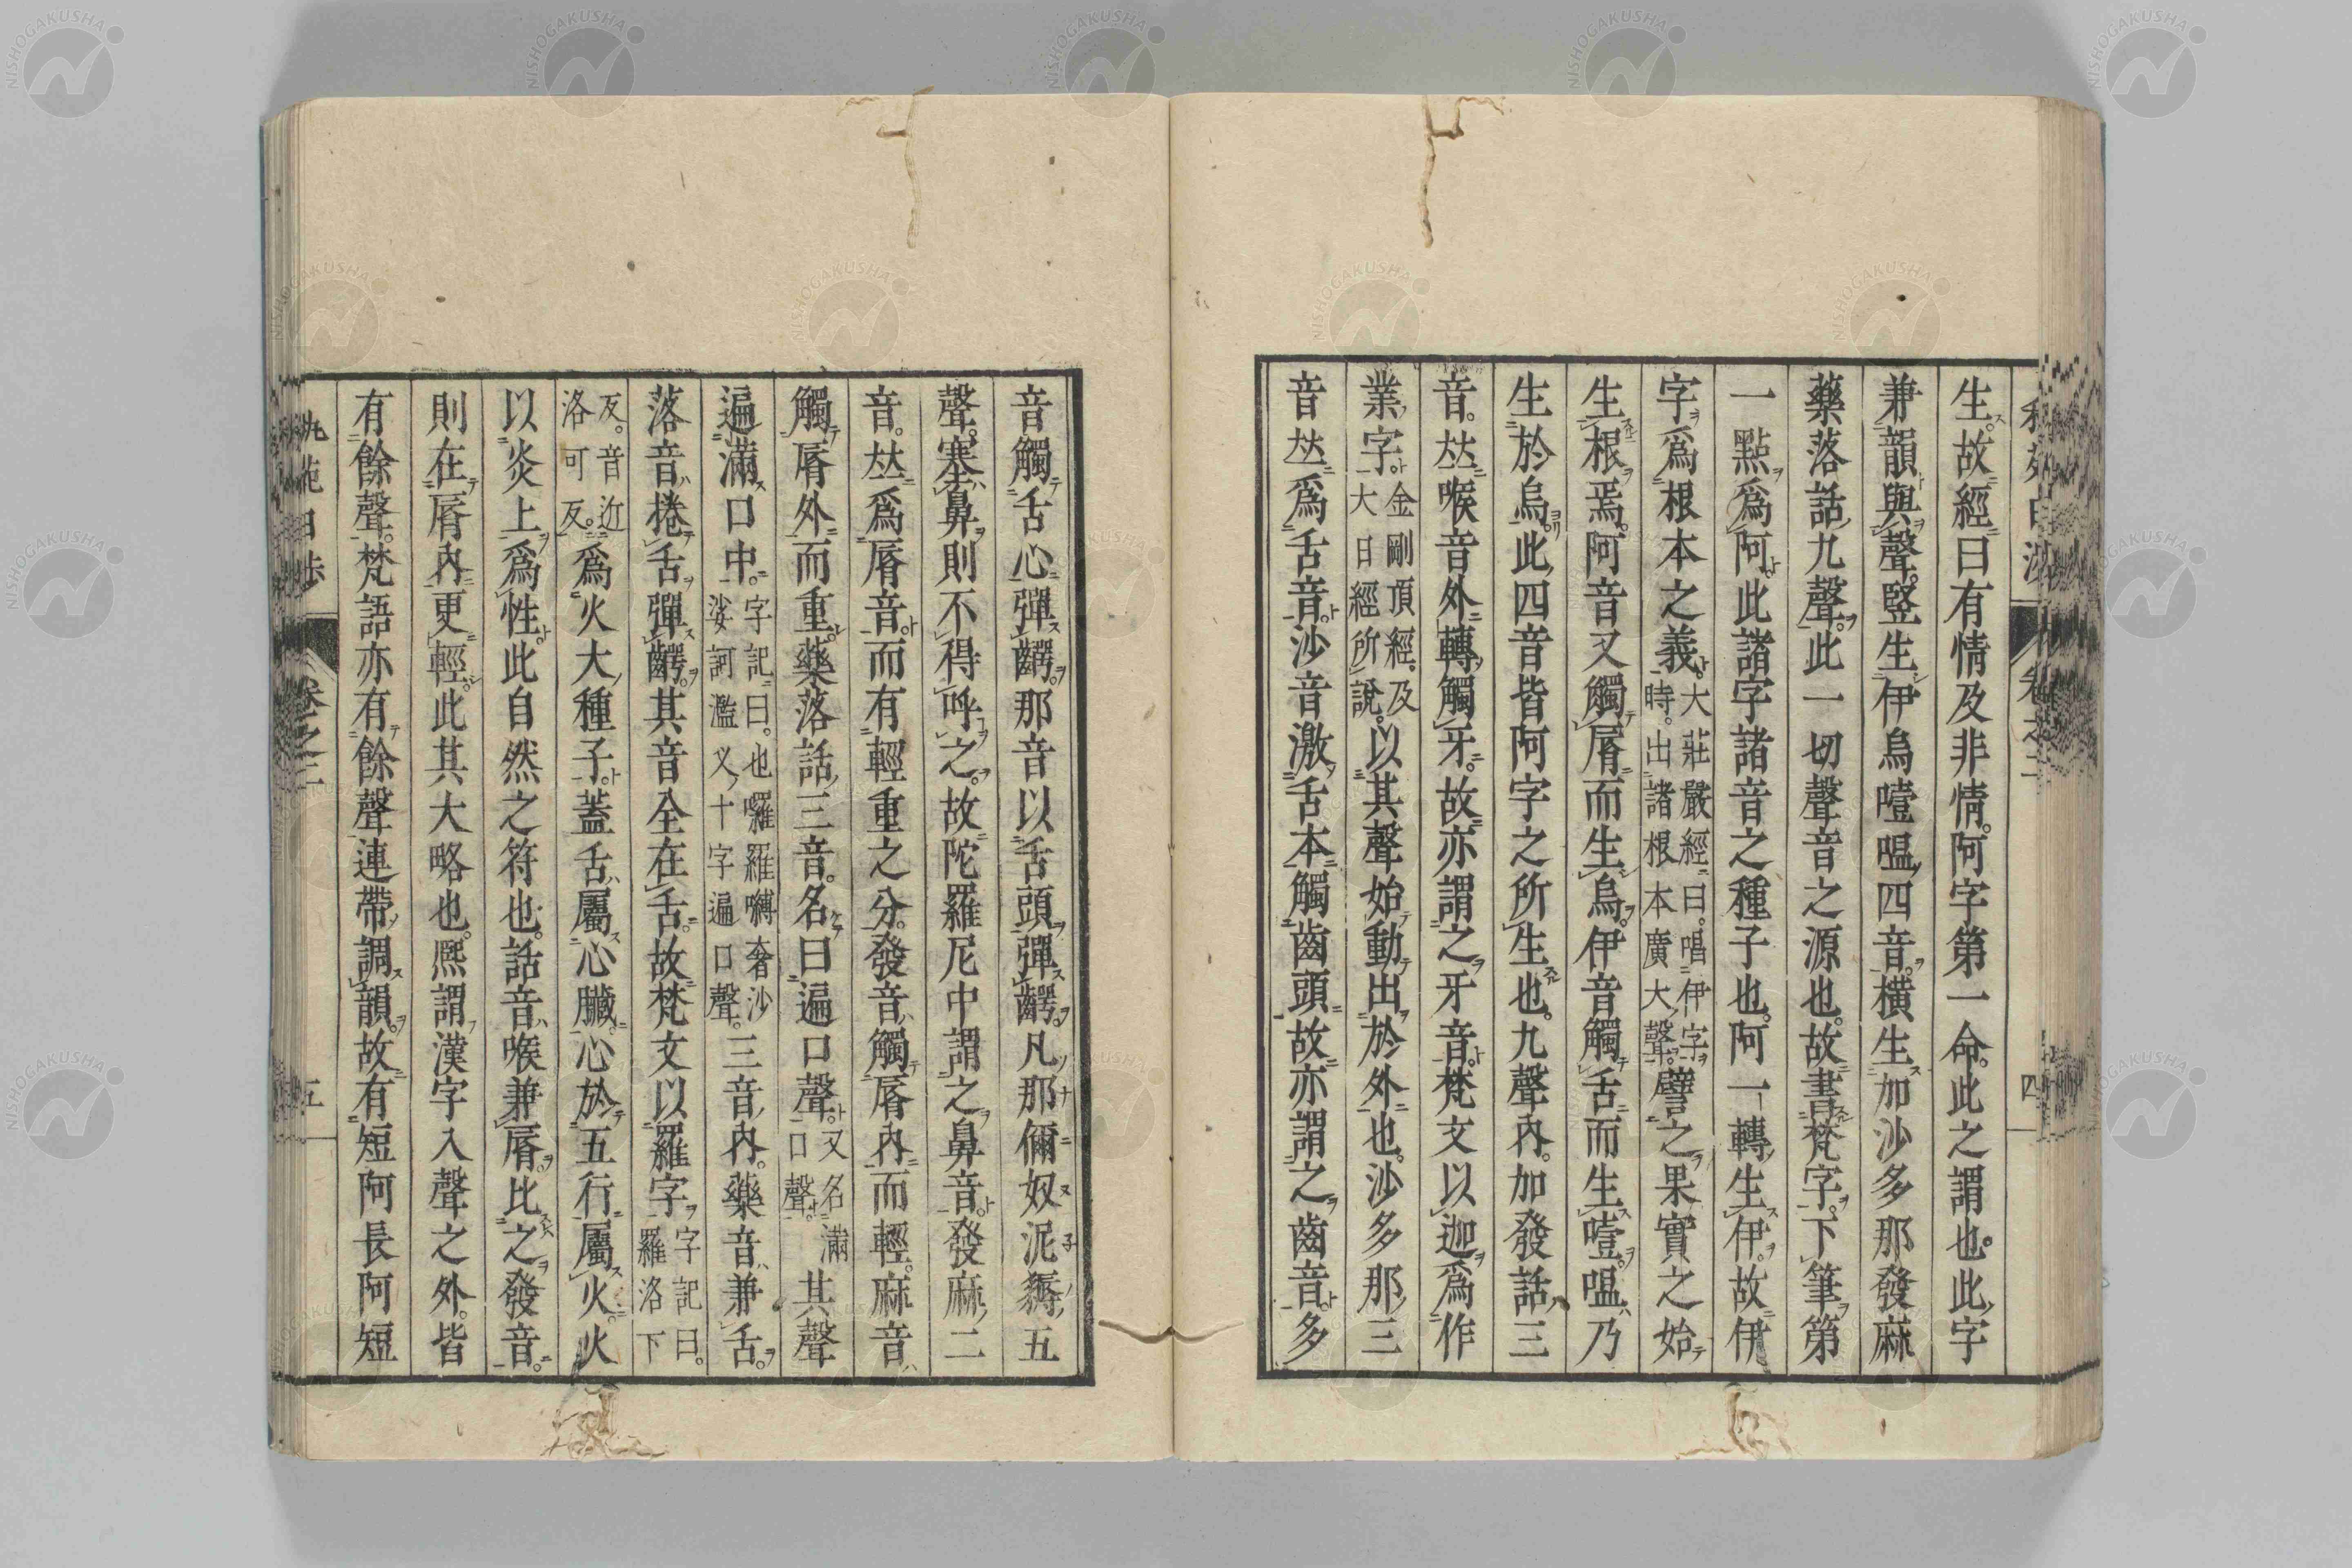 生故經曰有情及非情阿字第一命此之謂也此字
兼韻與聲竪生伊烏噎嗢四音橫生加沙多那發麻
藥落話九聲此一切聲音之源也故書梵字下筆第
一點爲阿此諸字諸音之種子也阿一轉生伊故伊
字爲根本之義大莊嚴經曰唱伊字時出諸根本廣大聲譬之果實之始
生根焉阿音又觸脣而生烏伊音觸舌而生噎嗢乃
生於烏此四音皆阿字之所生也九聲內加發話三
音厸喉音外轉觸牙故亦謂之牙音梵文以迦爲作
業字金剛頂經及大日經所說以其聲始動出於外也沙多那三
音厸爲舌音沙音激舌本觸齒頭故亦謂之齒音多
音觸舌心彈齶那音以舌頭彈齶凡那儞奴泥耨五
聲塞鼻則不得呼之故陀羅尼中謂之鼻音發麻二
音厸爲脣音而有輕重之分發音觸脣內而輕麻音
觸脣外而重藥落話三音名曰遍口聲又名滿口聲其聲
遍滿口中字記曰也囉羅嚩奢沙娑訶濫叉十字遍口聲三音內藥音兼舌
落音捲舌彈齶其音全在舌故梵文以羅字字記曰羅洛下
反音近洛可反爲火大種子蓋舌屬心臟心於五行屬火火
以炎上爲性此自然之符也話音喉兼脣比之發音
則在脣內更輕此其大略也熈謂漢字入聲之外皆
有餘聲梵語亦有餘聲連帶調韻故有短阿長阿短
卷之二
五
NISHOGAKUSHA